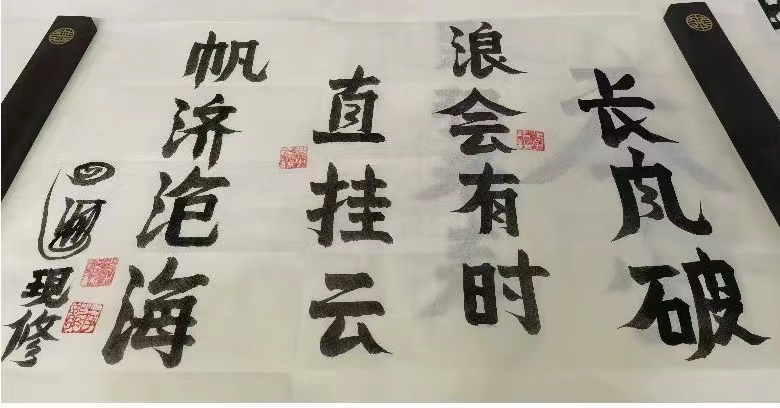 长风破
浪会有时
直挂云
帆济沧海
现修